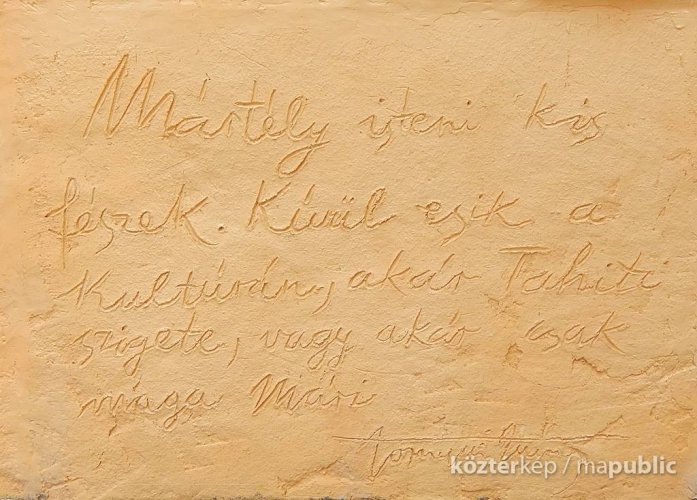 Mártély isteni kis
fészek. Kívül esik a
Kultúrán, akár Tahiti
szigete, vagy akár csak
maga Mári
Tornyai János
köztérkép / mapublic